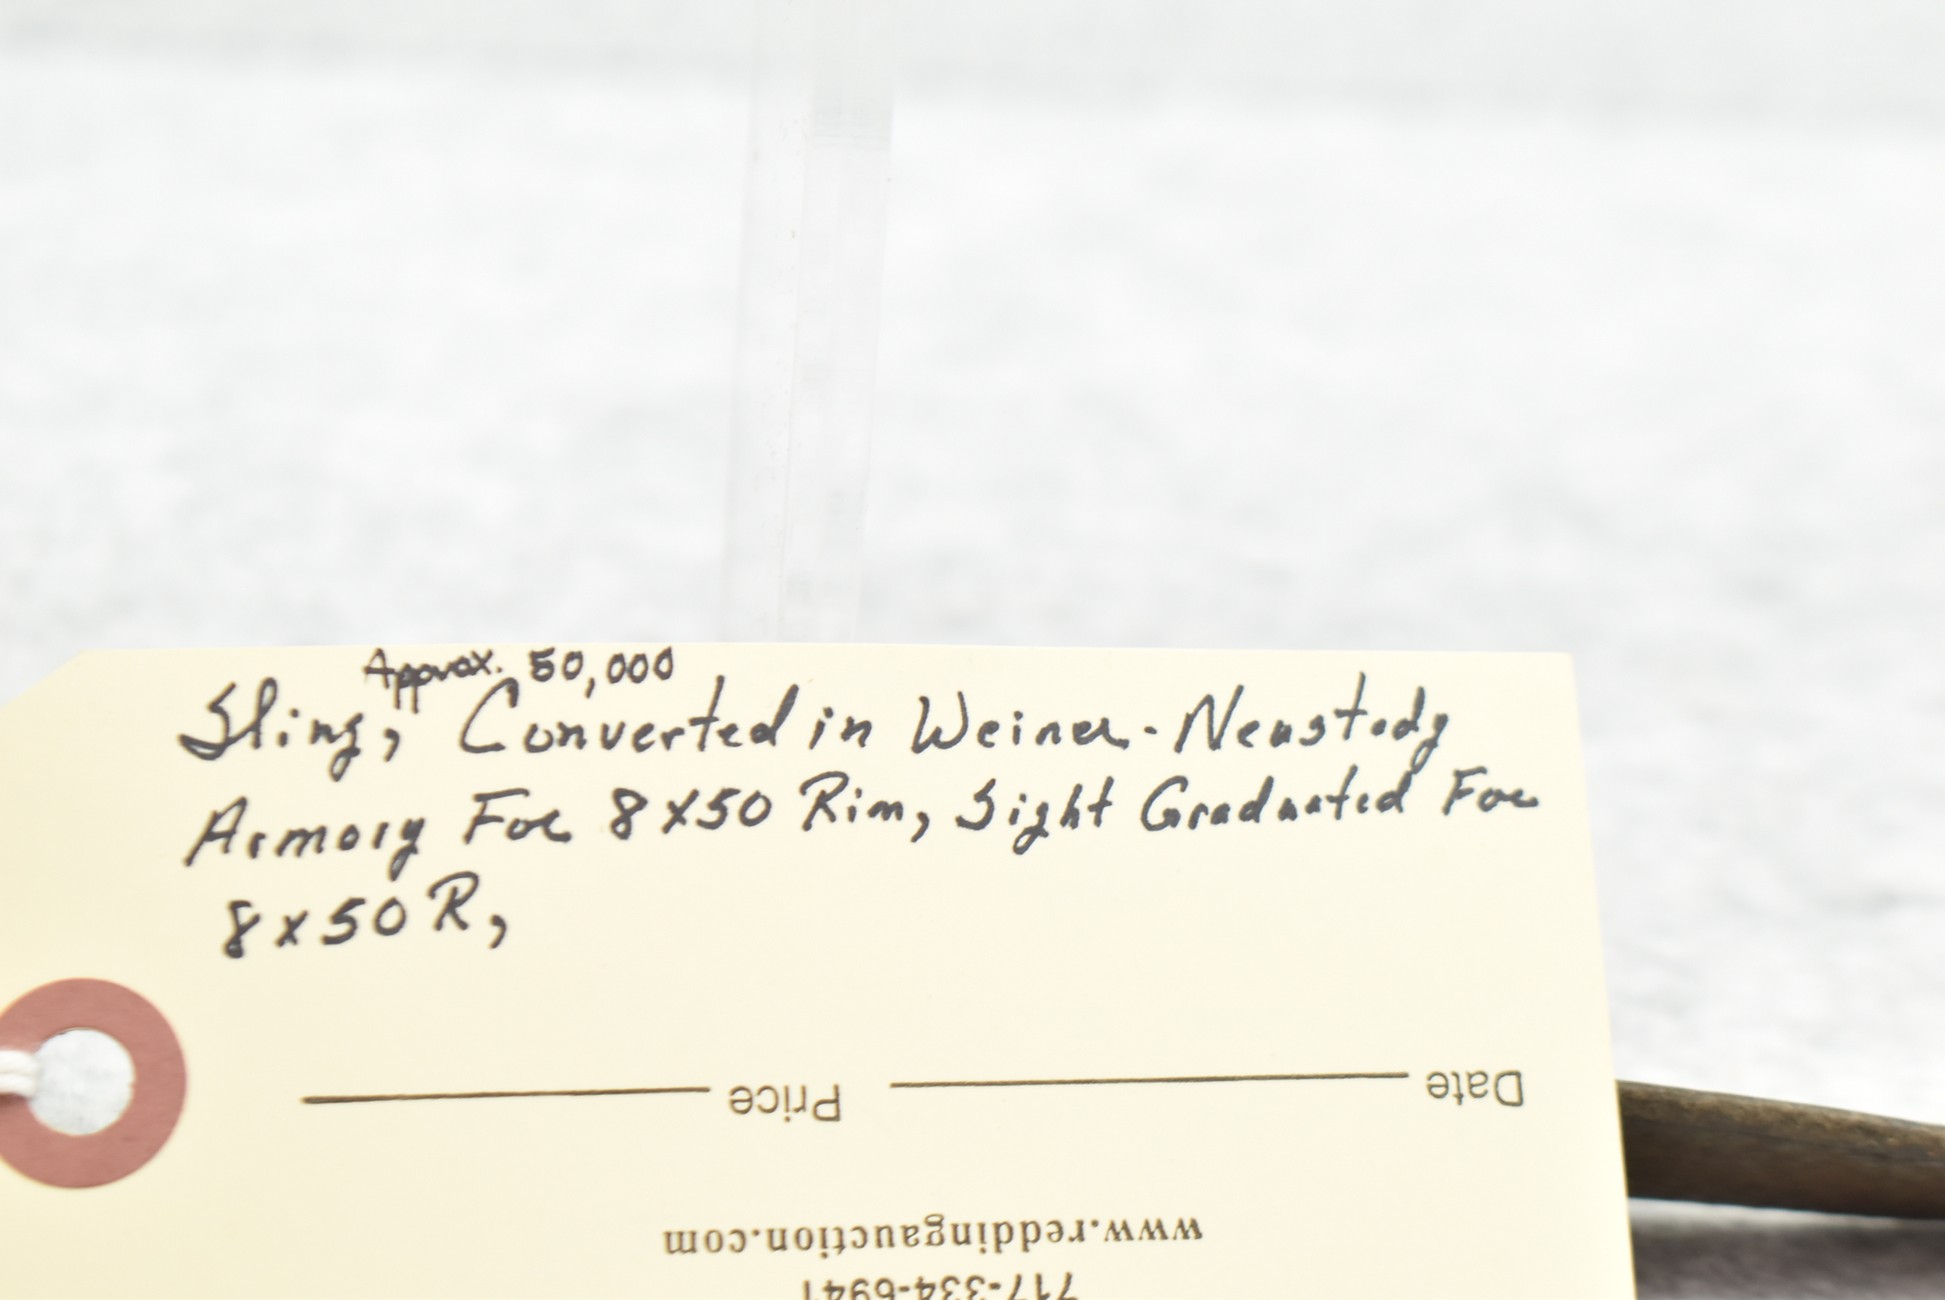 Approx. 50,000
Sling, Converted in Weiner-Neustady
Armory For 8x50 Rim, Sight Graduated For
8x50 R,
Price Date
www.reddingauction.com
717-334-6941